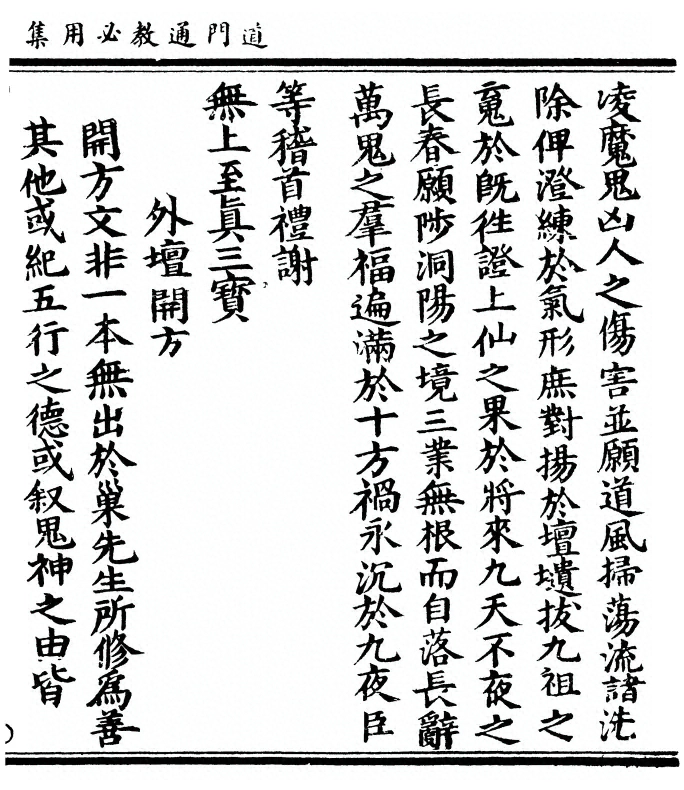 道門通教必用集
凌魔鬼凶人之傷害並願道風掃蕩流諸洗
除俾澄練於氣形庶對揚於壇墠拔九祖之
䰟於既徃證上仙之果於將來九天不夜之
長春願陟洞陽之境三業無根而自落長辭
萬鬼之羣福遍滿於十方禍永沉於九夜臣
等稽首禮謝
無上至眞三寳
外壇開方
開方文非一本無出於巢先生所修爲善
其他或紀五行之德或叙鬼神之由皆